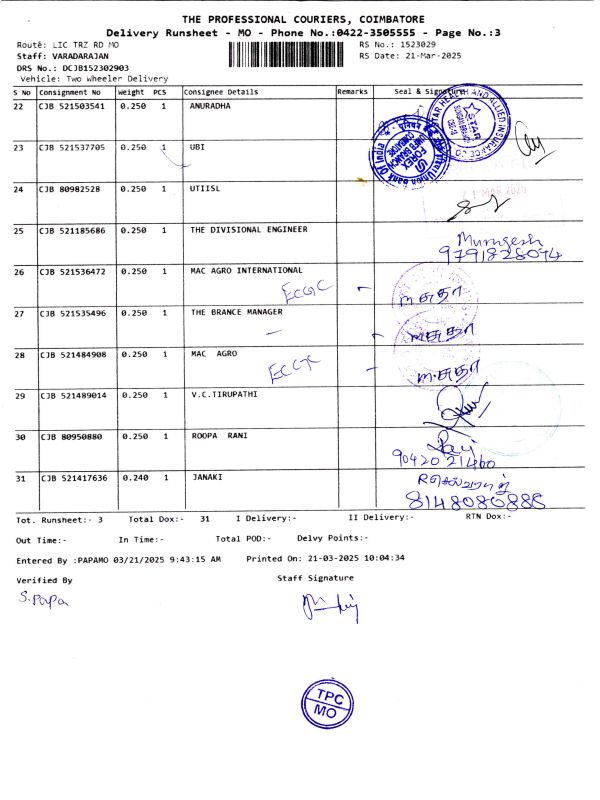 THE PROFESSIONAL COURIERS, COIMBATORE
Delivery Runsheet - MO - Phone No.:0422-3505555 - Page No.:3
Route: LIC TRZ RD MO RS No.: 1523029
Staff: VARADARAJAN RS Date: 21-Mar-2025
DRS No.: DCJB152302903
Vehicle: Two Wheeler Delivery
S No Consignment No Weight PCS Consignee Details Remarks Seal & Signature
22 CJB 521503541 0.250 1 ANURADHA
STAR HEALTH AND ALLIED INSURANCE CO
STAR
23 CJB 521537705 0.250 1 UBI
FOREX
24 CJB 80982528 0.250 1 UTIISL
21 MAR 2025
25 CJB 521185686 0.250 1 THE DIVISIONAL ENGINEER
Murugesh
9791828094
26 CJB 521536472 0.250 1 MAC AGRO INTERNATIONAL
ECGC
27 CJB 521535496 0.250 1 THE BRANCE MANAGER
28 CJB 521484908 0.250 1 MAC AGRO
ECGC
29 CJB 521489014 0.250 1 V.C.TIRUPATHI
30 CJB 80950880 0.250 1 ROOPA RANI
9042021460
31 CJB 521417636 0.240 1 JANAKI
8148080885
Tot. Runsheet:- 3 Total Dox:- 31 I Delivery:- II Delivery:- RTN Dox:-
Out Time:- In Time:- Total POD:- Delvy Points:-
Entered By :PAPAMO 03/21/2025 9:43:15 AM Printed On: 21-03-2025 10:04:34
Verified By Staff Signature
S.Papa
TPC
MO